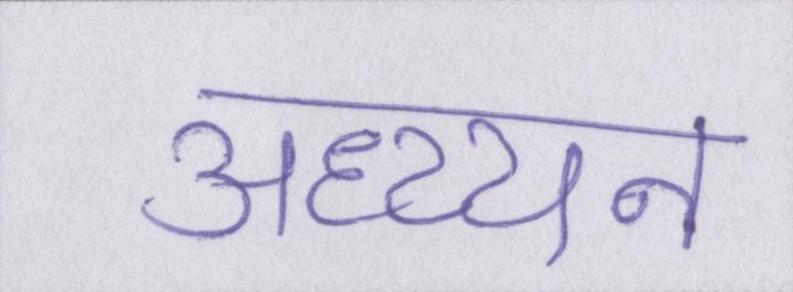 अध्य्यन